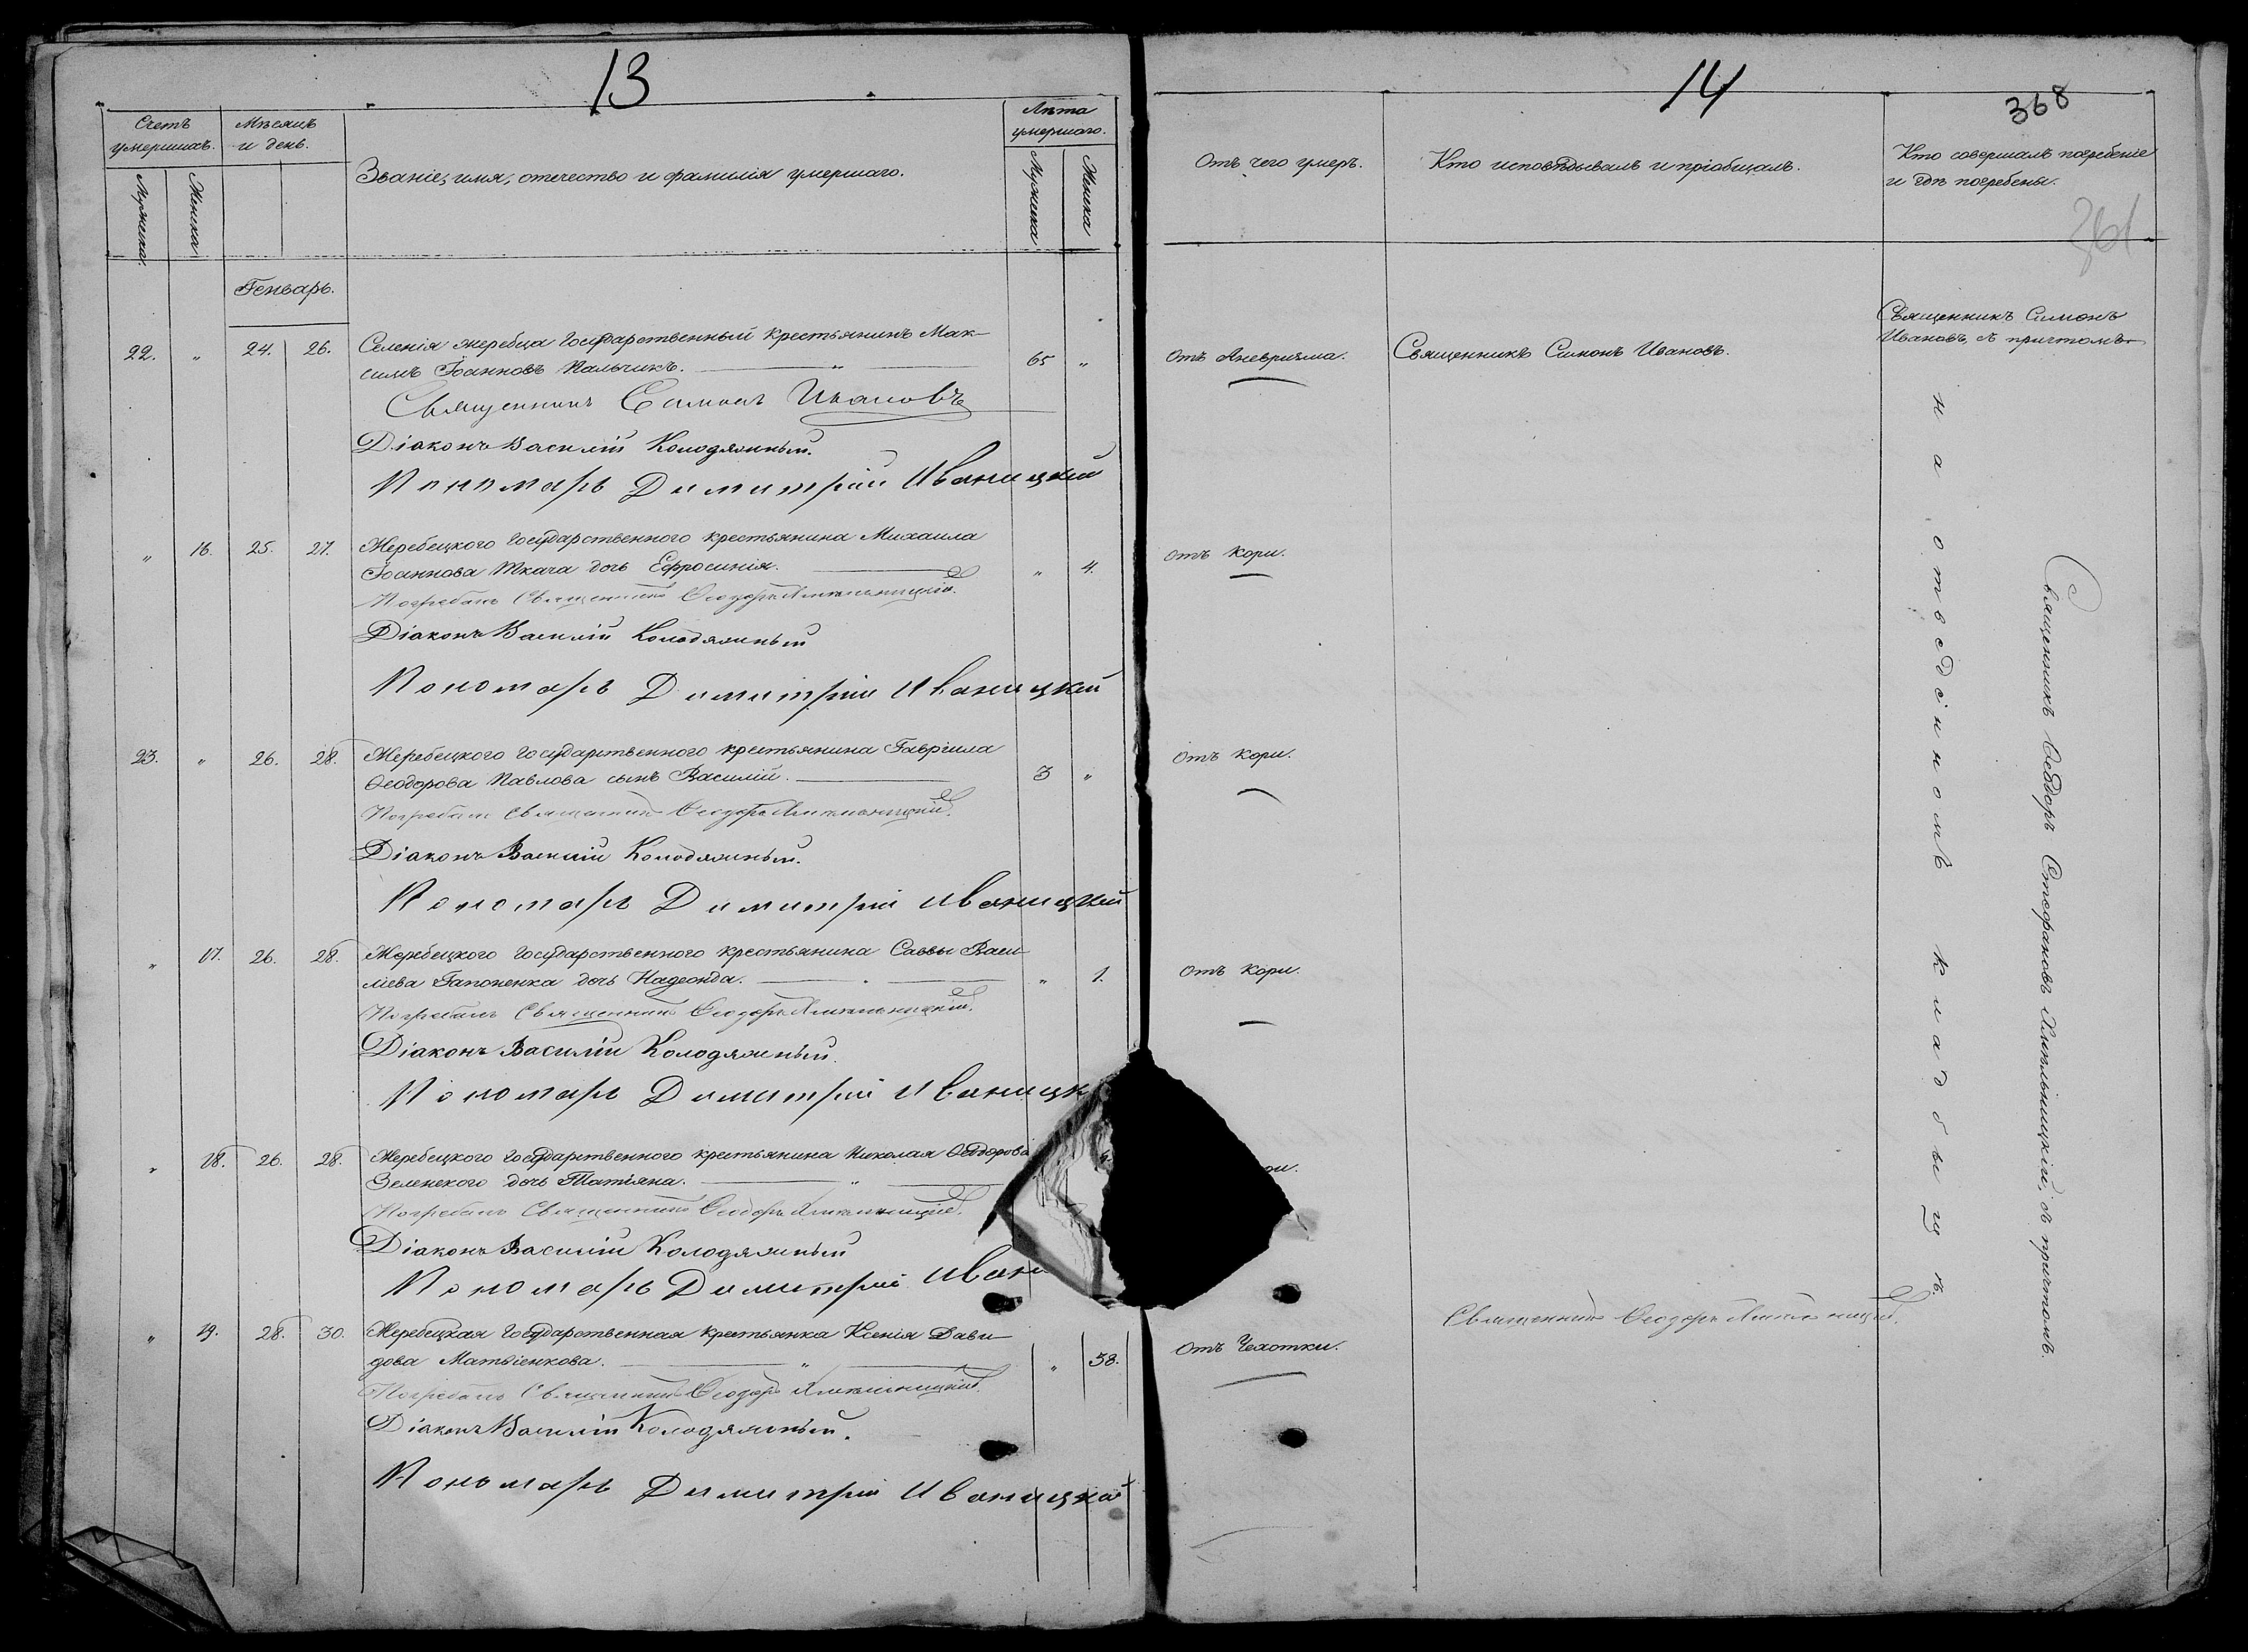 13
Счетъ умершихъ.
Мѣсяцъ и день.
Званіе, имя, отечество и фамилія умершаго.
Лѣта умершаго.
Мужеска.
Женска
Мужеска
Женска
Генварь.
22. " 24. 26. Селенія Жеребца Государственный крестьянинъ Мак-
симъ Іоанновъ Пальчикъ. " 65 "
Священникъ Симонъ Ивановъ
Діаконъ Василій Колодяжный.
Пономарь Димитрій Иваницкій
" 16. 25. 27. Жеребецкого Государственного крестьянина Михаила
Іоаннова Ткача дочь Ефросинія. " 4.
Погребалъ Священникъ Ѳеодоръ Хмельницкій.
Діаконъ Василій Колодяжный
Пономарь Димитрій Иваницкій
23. " 26. 28. Жеребецкого Государственного крестьянина Гавріила
Ѳеодорова Павлова сынъ Василій. 3 "
Погребалъ Священникъ Ѳеодоръ Хмельницкій.
Діаконъ Василій Колодяжный.
Пономарь Димитрій Иваницкій
" 17. 26. 28. Жеребецкого Государственного крестьянина Саввы Васи-
ліева Гапоненка дочь Надежда. " 1.
Погребалъ Священникъ Ѳеодоръ Хмельницкій.
Діаконъ Василій Колодяжный.
Пономарь Димитрій Иваницк
" 18. 26. 28. Жеребецкого Государственного крестьянина Николая Ѳеодорова
Зеленского дочь Татіяна. "
Погребалъ Священникъ Ѳеодоръ Хмельницкій.
Діаконъ Василій Колодяжный
Пономарь Димитрій Ивани
" 19. 28. 30. Жеребецкая Государственная крестьянка Ксенія Дави-
дова Матвіенкова. " " 58.
Погребалъ Священникъ Ѳеодоръ Хмельницкій.
Діаконъ Василій Колодяжный.
Пономарь Димитрій Иваницкій
14
368
361
Отъ чего умеръ.
Кто исповѣдывалъ и пріобщалъ.
Кто совершалъ погребеніе
и гдѣ погребены.
Отъ Аневризма.
Священникъ Симонъ Ивановъ.
Священникъ Симонъ
Ивановъ, съ причтомъ
Отъ Кори.
Отъ Кори.
Отъ Кори.
ри.
Отъ Чахотки.
Священникъ Ѳеодоръ Хмельницкій.
на отведенномъ кладбищѣ.
Священникъ Ѳеодоръ Стефановъ Хмѣльницкій, съ причтомъ.